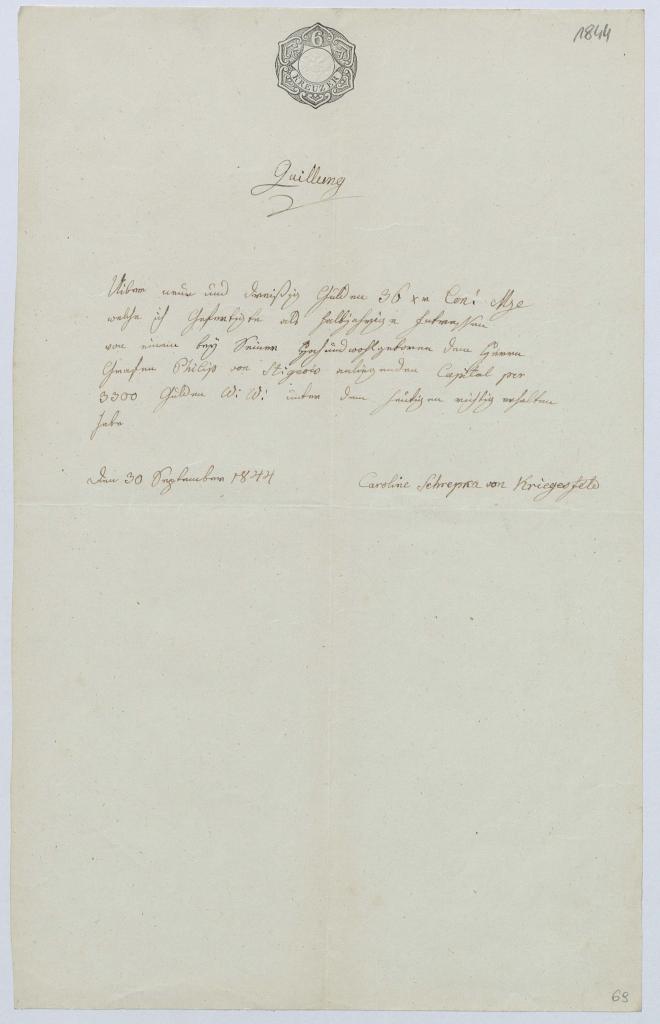 1844
6
KREUZER
Quittung
Uiber neun und dreißig Gulden 36 xr Con: Mze
welche ich Gefertigte als halbjährige Intressen
von einem bey Seiner Hoch und wohlgeboren dem Herrn
Grafen Philip von anliegenden Capital per
3300 Gulden W: W: unter dem heutigen richtig erhalten
habe
Den 30 September 1844
Caroline Schrepka von Kriegesfeld
68